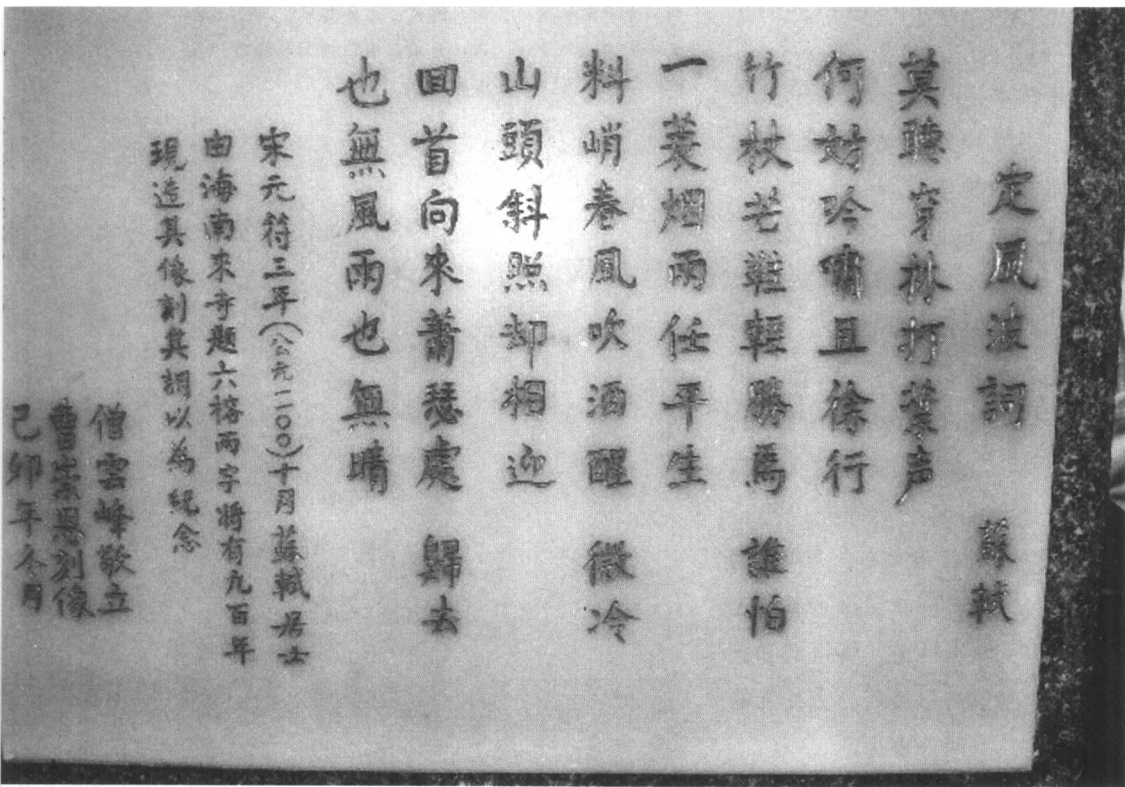 定風波詞 蘇軾
莫聽穿林打葉声
何妨吟嘯且徐行
竹杖芒鞋輕勝馬 誰怕
一蓑烟雨任平生
料峭春風吹酒醒 微冷
山頭斜照却相迎
回首向來蕭瑟處 歸去
也無風雨也無晴
宋元符三年(公元一一〇〇)十月蘇軾居士
由海南來寺題六榕兩字將有九百年
現造其像刻其詞以為紀念
僧雲峰敬立
曹崇恩刻像
己卯年冬月